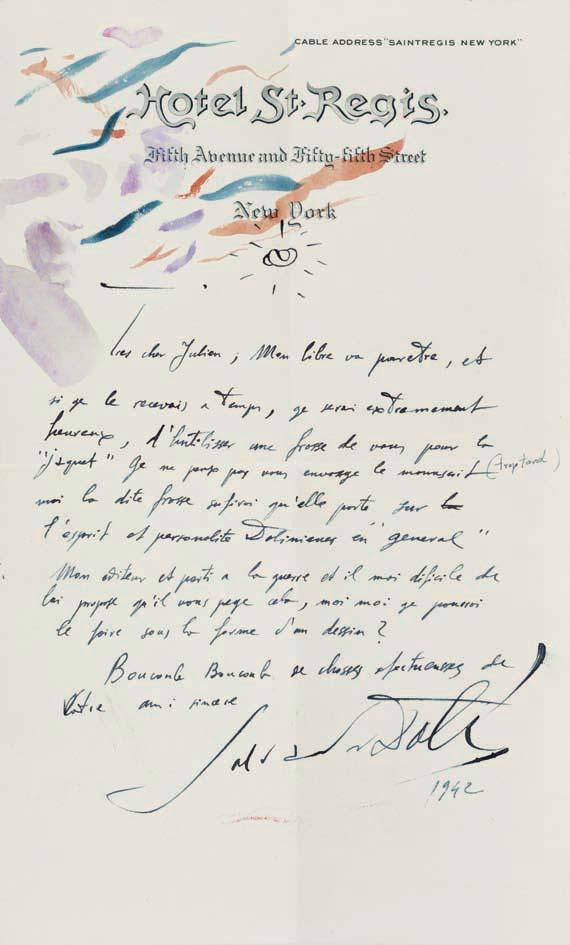 CABLE ADDRESS "SAINTREGIS NEW YORK"
Hotel St. Regis.
Fifth Avenue and Fifty-fifth Street
New York
Tres cher Julien ; Mon libre va paretre, et
si ge le recevais a temps, ge serai extramement
heureux, d'hutilisser une frosse de vous pour la
"jaquet" Ge ne peux pas vous envoyge le manusait (trop tard)
moi la dite frosse sufiroi qu'elle porte sur la
l'esprit et personalite Daliniener en "general"
Mon editeur et parti a la guerre et il moi dificile de
lui propose qu'il vous page cela, moi moi ge pouroi
le foire sous la forme d'un dessin ?
Boucoule Boucoule de choses afectueusses de
Votre ami sincere
Salvador Dali
1942